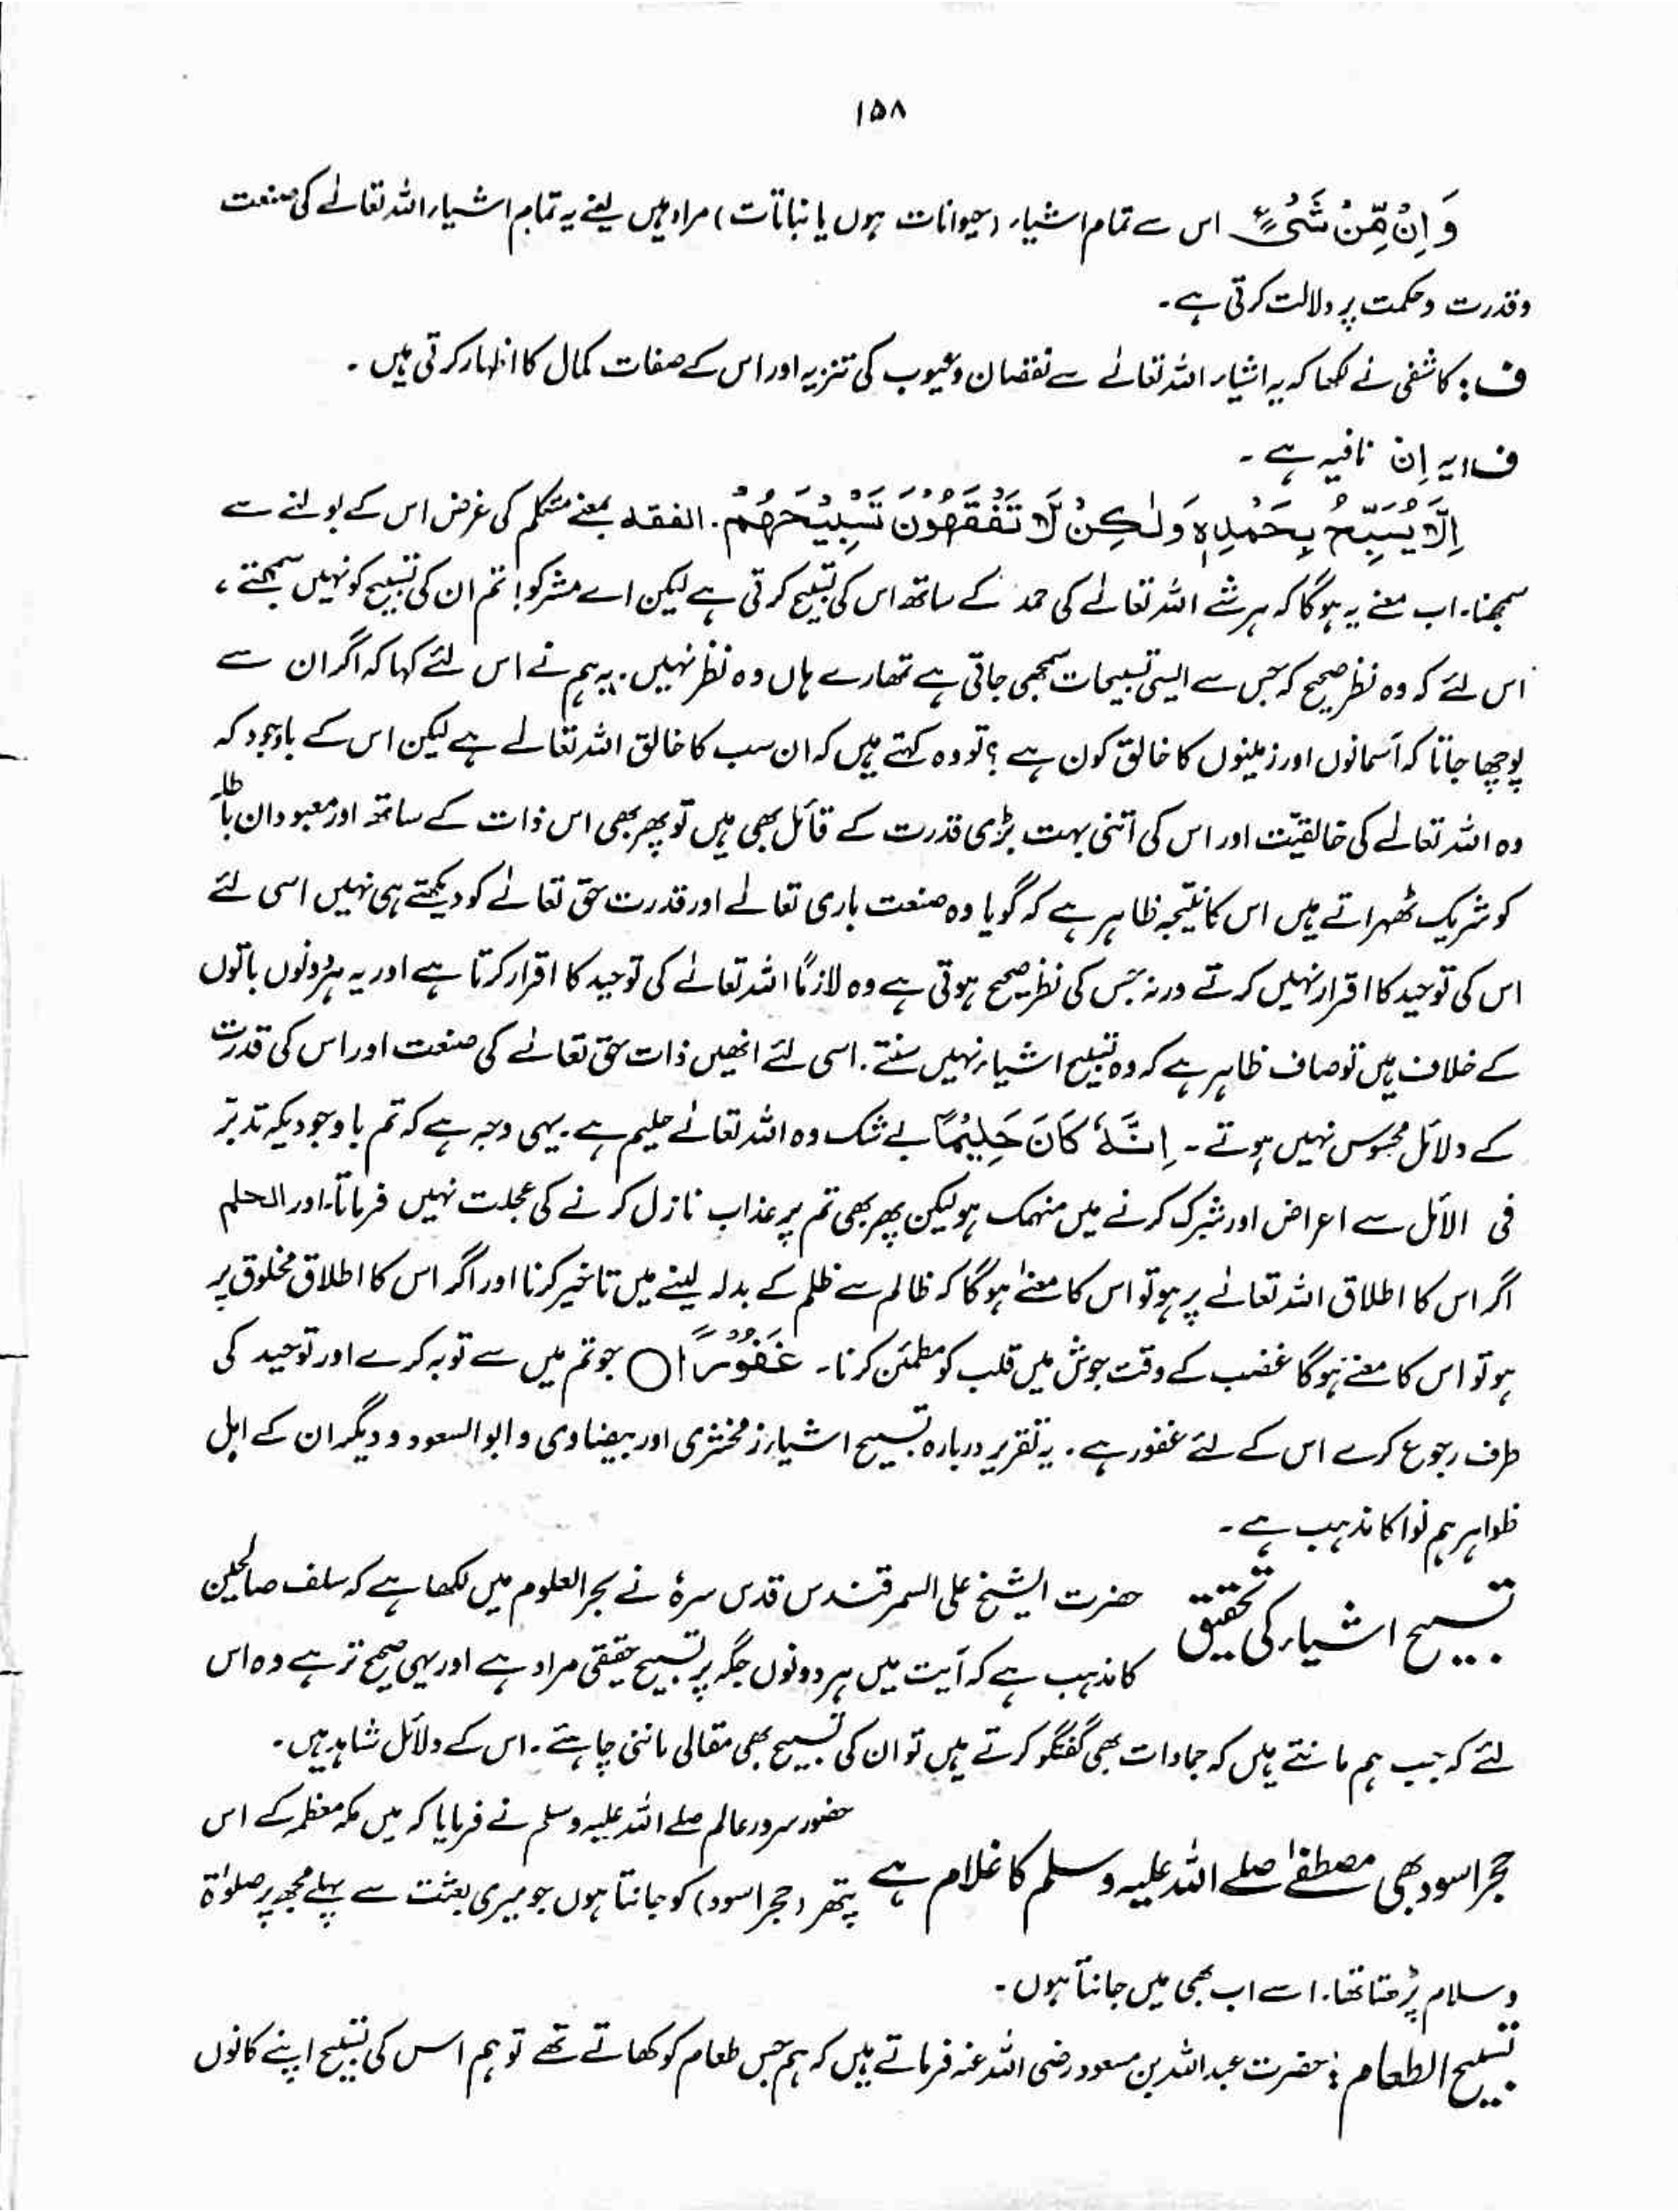 ۱۵۸
وَ اِنْ مِّنْ شَیْءٍ اس سے تمام اشیاء (حیوانات ہوں یا نباتات) مراد ہیں یعنے یہ تمام اشیاء اللہ تعالےٰ کی صنعت
وقدرت وحکمت پر دلالت کرتی ہے۔
ف: کاشفی نے لکھا کہ یہ اشیاء اللہ تعالےٰ سے نقصان وعیوب کی تنزیہ اور اس کے صفات کمال کا اظہار کرتی ہیں۔
ف: یہ اِن نافیہ ہے۔
اِلَّا یُسَبِّحُ بِحَمْدِہٖ وَلٰکِنْ لَّا تَفْقَهُوْنَ تَسْبِیْحَهُمْ۔ الفقہ بمعنے متکلم کی غرض اس کے بولنے سے
سمجھنا۔ اب معنے یہ ہوگا کہ ہر شے اللہ تعالےٰ کی حمد کے ساتھ اس کی تسبیح کرتی ہے لیکن اے مشرکو! تم ان کی تسبیح کو نہیں سمجھتے،
اس لئے کہ وہ نظر صحیح کہ جس سے ایسی تسبیحات سمجھی جاتی ہے تمھارے ہاں وہ نظر نہیں۔ یہ ہم نے اس لئے کہا کہ اگر ان سے
پوچھا جاتا کہ آسمانوں اور زمینوں کا خالق کون ہے؟ تو وہ کہتے ہیں کہ ان سب کا خالق اللہ تعالےٰ ہے لیکن اس کے باوجود کہ
وہ اللہ تعالےٰ کی خالقیّت اور اس کی اتنی بہت بڑی قدرت کے قائل بھی ہیں تو پھر بھی اس ذات کے ساتھ اور معبودان باطلہ
کو شریک ٹھہراتے ہیں اس کا نتیجہ ظاہر ہے کہ گویا وہ صنعت باری تعالےٰ اور قدرت حق تعالےٰ کو دیکھتے ہی نہیں اسی لئے
اس کی توحید کا اقرار نہیں کرتے ورنہ جس کی نظر صحیح ہوتی ہے وہ لازمًا اللہ تعالےٰ کی توحید کا اقرار کرتا ہے اور یہ ہر دونوں باتوں
کے خلاف ہیں تو صاف ظاہر ہے کہ وہ تسبیح اشیاء نہیں سنتے۔ اسی لئے انھیں ذات حق تعالےٰ کی صنعت اور اس کی قدرت
کے دلائل محسوس نہیں ہوتے۔ اِنَّهٗ کَانَ حَلِیْمًا بے شک وہ اللہ تعالےٰ حلیم ہے۔ یہی وجہ ہے کہ تم باوجودیکہ تدبّر
فی الائل سے اعراض اور شرک کرنے میں منہمک ہو لیکن پھر بھی تم پر عذاب نازل کرنے کی عجلت نہیں فرماتا۔ اور الحلم
اگر اس کا اطلاق اللہ تعالےٰ پر ہو تو اس کا معنےٰ ہوگا کہ ظالم سے ظلم کے بدلہ لینے میں تاخیر کرنا اور اگر اس کا اطلاق مخلوق پر
ہو تو اس کا معنے ہوگا غضب کے وقت جوش میں قلب کو مطمئن کرنا۔ غَفُوْرًا ○ جو تم میں سے توبہ کرے اور توحید کی
طرف رجوع کرے اس کے لئے غفور ہے۔ یہ تقریر دربارہ تسبیح اشیاء زمخشری اور بیضاوی و ابوالسعود و دیگر ان کے اہل
ظواہر ہم نوا کا مذہب ہے۔
تسبیح اشیاء کی تحقیق حضرت الشیخ علی السمرقندس قدس سرہٗ نے بحرالعلوم میں لکھا ہے کہ سلف صالحین
کا مذہب ہے کہ آیت میں ہر دونوں جگہ پر تسبیح حقیقی مراد ہے اور یہی صحیح تر ہے وہ اس
لئے کہ جب ہم مانتے ہیں کہ جمادات بھی گفتگو کرتے ہیں تو ان کی تسبیح بھی مقالی ماننی چاہئے۔ اس کے دلائل شاہد ہیں۔
حجر اسود بھی مصطفےٰ صلے اللہ علیہ وسلم کا غلام ہے حضور سرور عالم صلے اللہ علیہ وسلم نے فرمایا کہ میں مکہ معظمہ کے اس
پتھر (حجر اسود) کو جانتا ہوں جو میری بعثت سے پہلے مجھ پر صلوٰۃ
وسلام پڑھتا تھا۔ اسے اب بھی میں جانتا ہوں۔
تسبیح الطعام: حضرت عبداللہ بن مسعود رضی اللہ عنہ فرماتے ہیں کہ ہم جس طعام کو کھاتے تھے تو ہم اس کی تسبیح اپنے کانوں